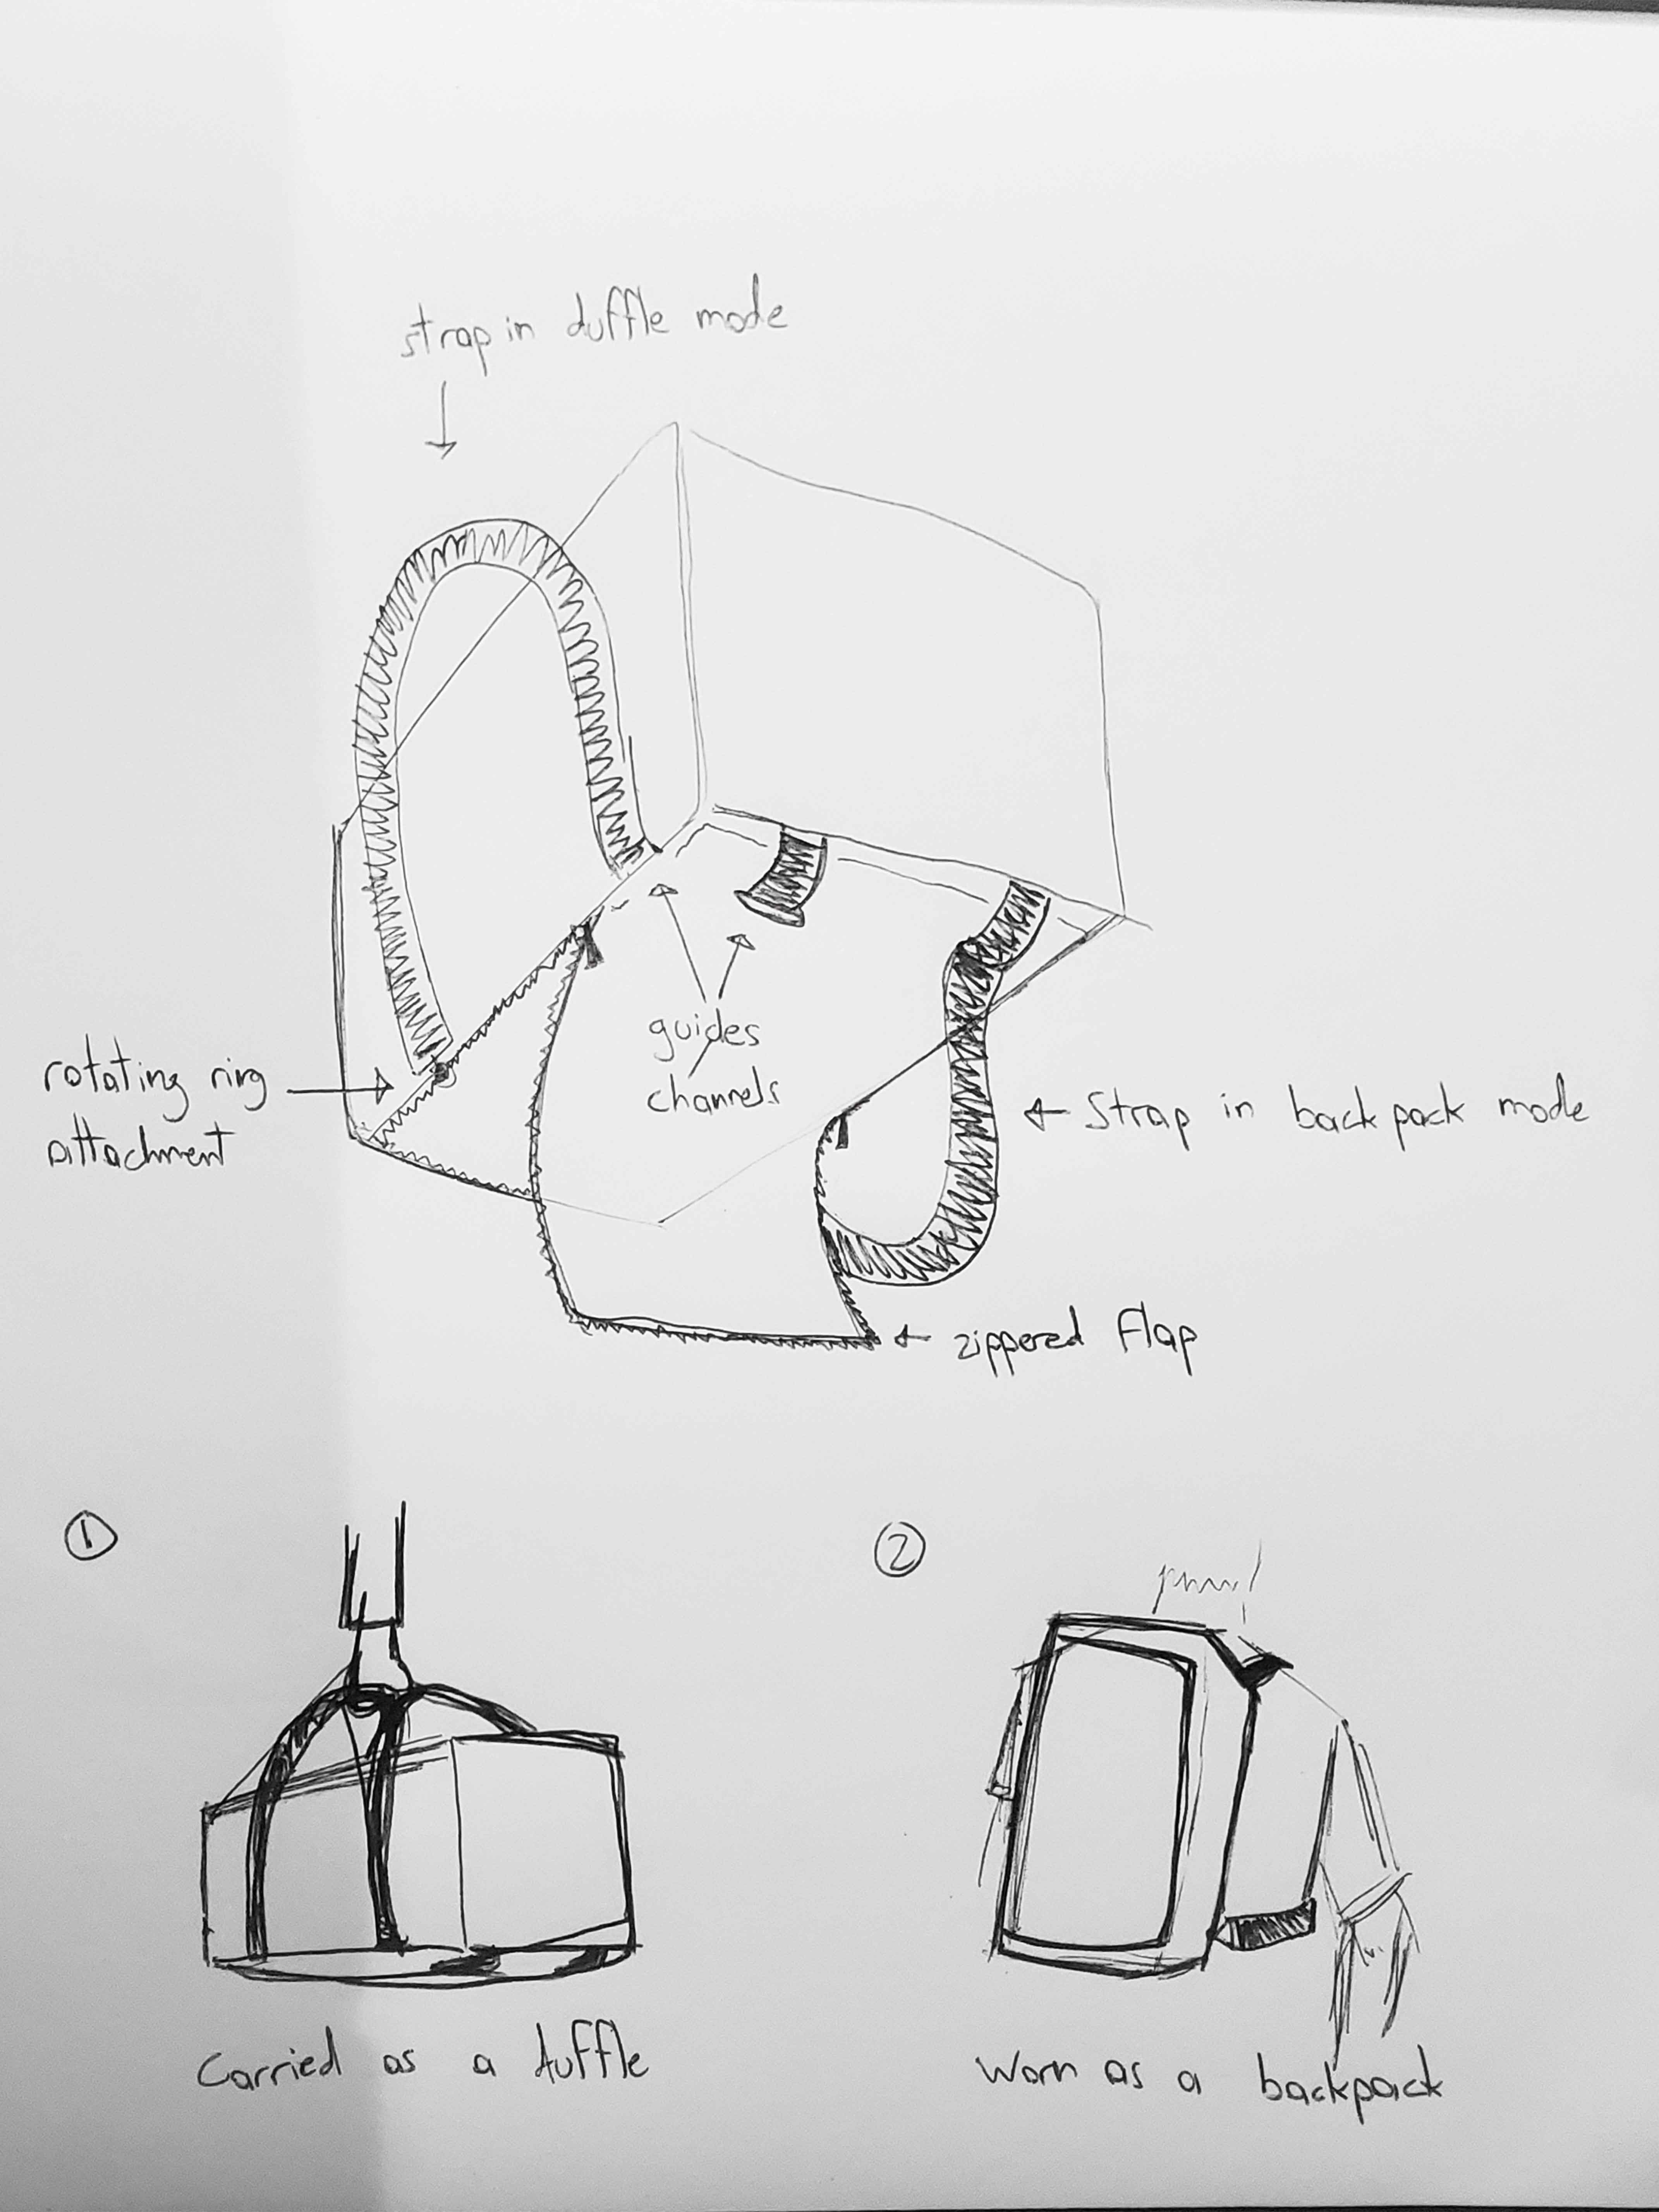 strap in duffle mode
guides
channels
rotating ring
attachment
Strap in backpack mode
zippered flap
1
2
Carried as a duffle
Worn as a backpack